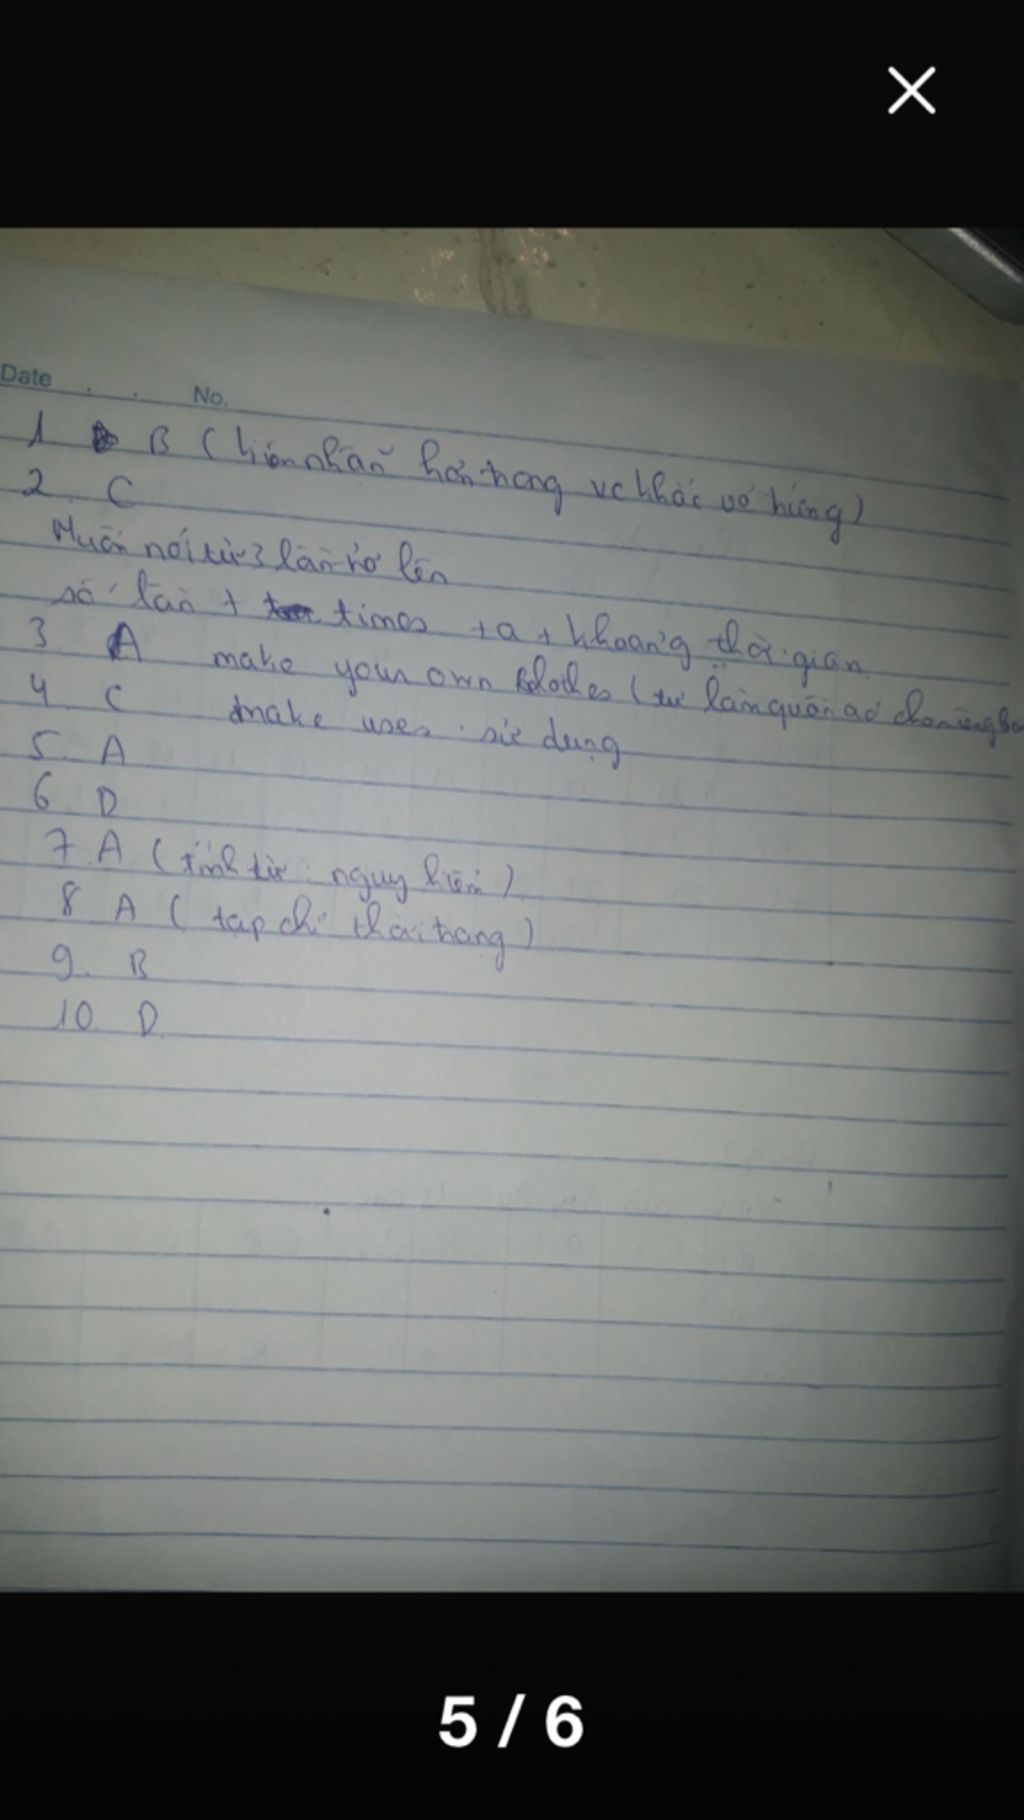 Date . . No.
1 B (kiên nhẫn hơn trong vc khác vô hứng)
2. C
Muốn nói từ 3 lần trở lên
số lần + times + a + khoảng thời gian
3 A make your own clothes (tự làm quần áo cho riêng bạ
4 C make uses : sử dụng
5. A
6. D
7. A (tính từ : nguy hiểm)
8 A ( tạp chí thời trang )
9. B
10. D
5 / 6